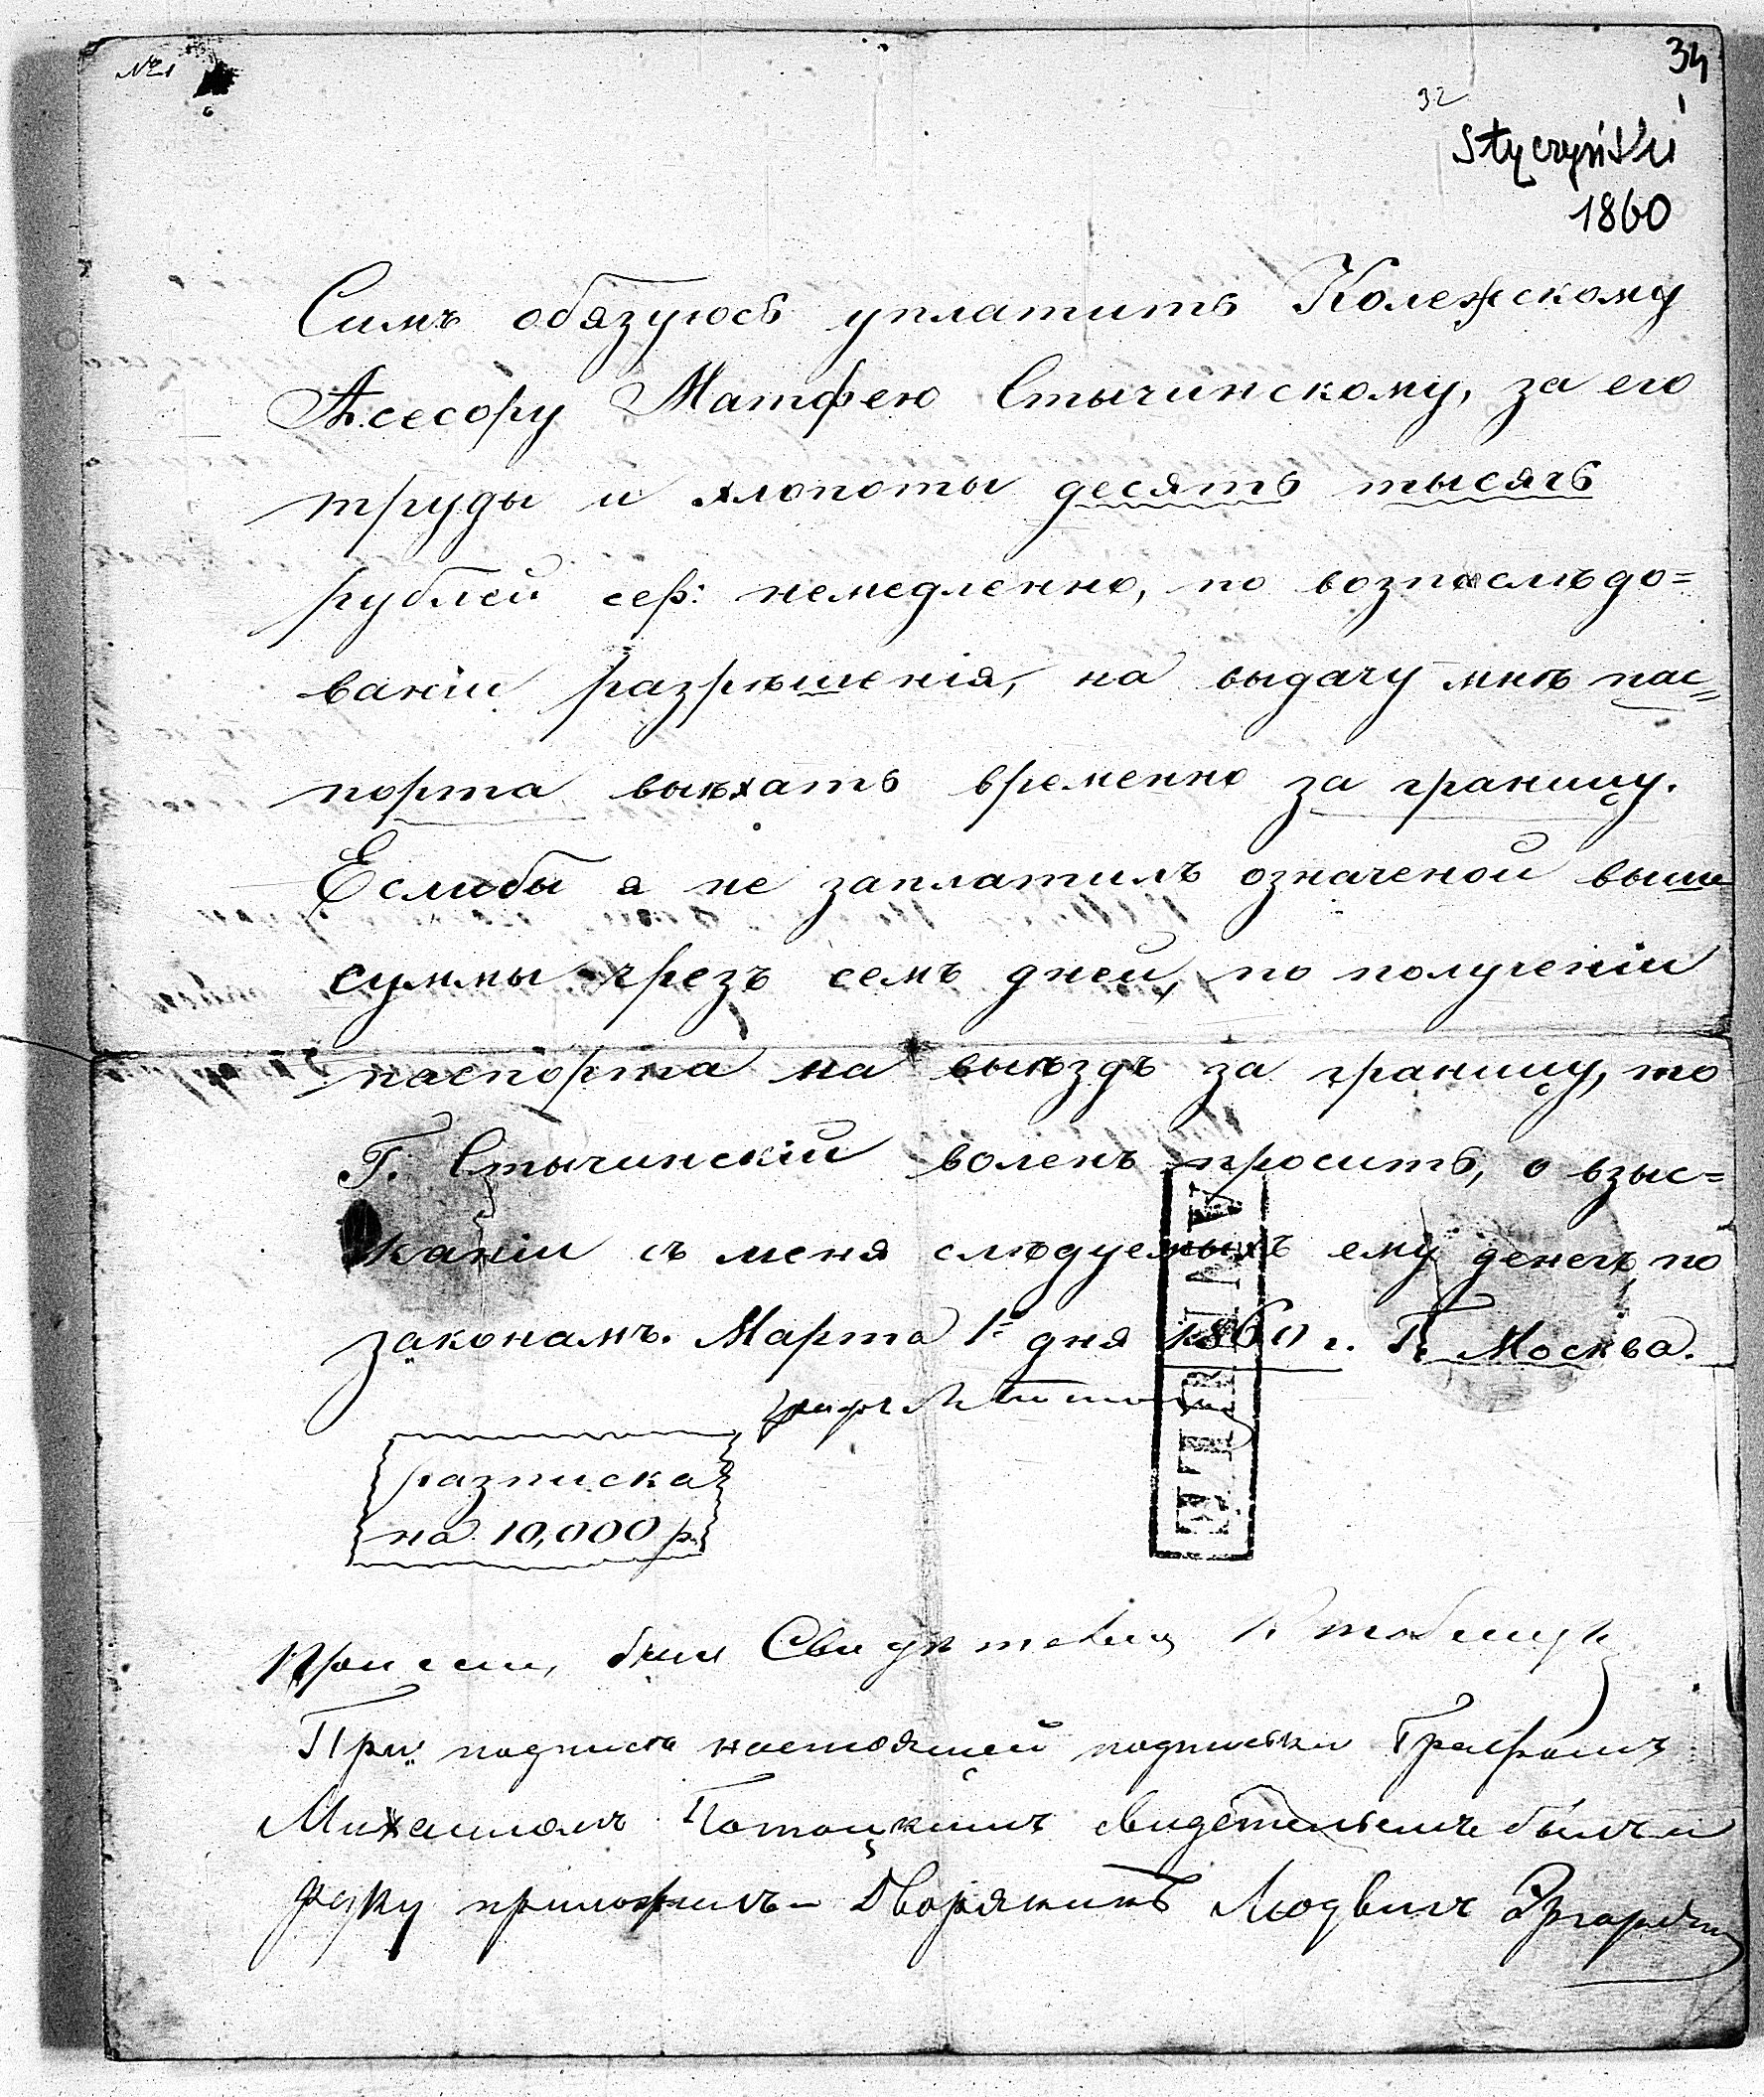 №1
34
32
Styczyński
1860
Симъ обязуюсь уплатить Колежскому
Ассесору Матфею Стычинскому, за его
труды и хлопоты десять тысячь
рублей сер: немедленно, по возпослѣдо=
ваніи разрѣшенія, на выдачу мнѣ пас=
порта выѣхать временно за границу.
Еслибы я не заплатилъ означеной выше
суммы чрезъ семь дней, по полученіи
паспорта на выѣздъ за границу, то
Г. Стычинскій воленъ просить, о взыс=
каніи съ меня слѣдуемыхъ ему денегъ, по
законамъ. Марта 1го дня 1860 г. Г. Москва.
графъ
разписка
на 10,000 р.
При семъ былъ Свидѣтелемъ
При подписѣ настоящей подписки Графомъ
Михаиломъ Потоцкимъ свидетельемъ былъ и
руку приложилъ Дворянинъ Людвигъ